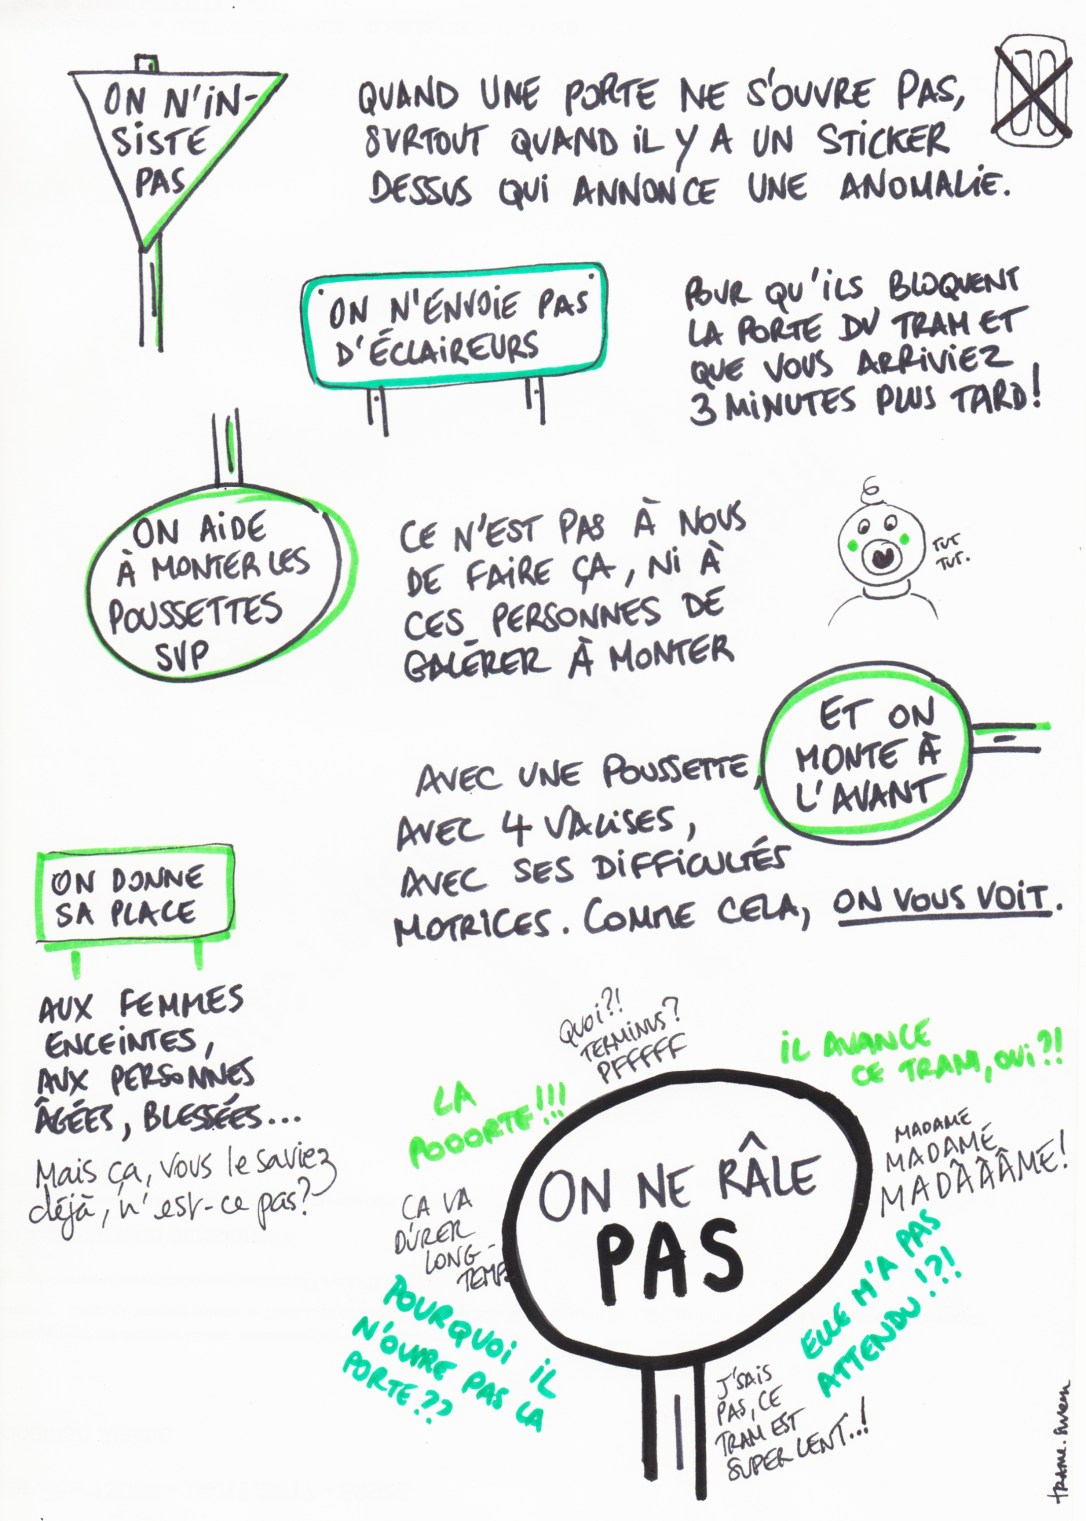 ON N'IN-
SISTE
PAS
QUAND UNE PORTE NE S'OUVRE PAS,
SURTOUT QUAND IL Y A UN STICKER
DESSUS QUI ANNONCE UNE ANOMALIE.
ON N'ENVOIE PAS
D'ÉCLAIREURS
POUR QU'ILS BLOQUENT
LA PORTE DU TRAM ET
QUE VOUS ARRIVIEZ
3 MINUTES PLUS TARD!
ON AIDE
À MONTER LES
POUSSETTES
SVP
CE N'EST PAS À NOUS
DE FAIRE ÇA, NI À
CES PERSONNES DE
GALÉRER À MONTER
TUT
TUT.
ET ON
MONTE À
L'AVANT
AVEC UNE POUSSETTE,
AVEC 4 VALISES,
AVEC SES DIFFICULTÉS
MOTRICES. COMME CELA, ON VOUS VOIT.
ON DONNE
SA PLACE
AUX FEMMES
ENCEINTES,
AUX PERSONNES
ÂGÉES, BLESSÉES...
Mais ça, vous le saviez
déjà, n'est-ce pas?
QUOI?!
TERMINUS?
PFFFFF
IL AVANCE
CE TRAM, OUI?!
LA
POOORTE!!!
MADAME
MADAME
MADÂÂÂME!
ON NE RÂLE
PAS
ÇA VA
DURER
LONG-
TEMPS
POURQUOI IL
N'OUVRE PAS LA
PORTE??
ELLE M'A PAS
ATTENDU!?!
J'SAIS
PAS, CE
TRAM EST
SUPER LENT..!